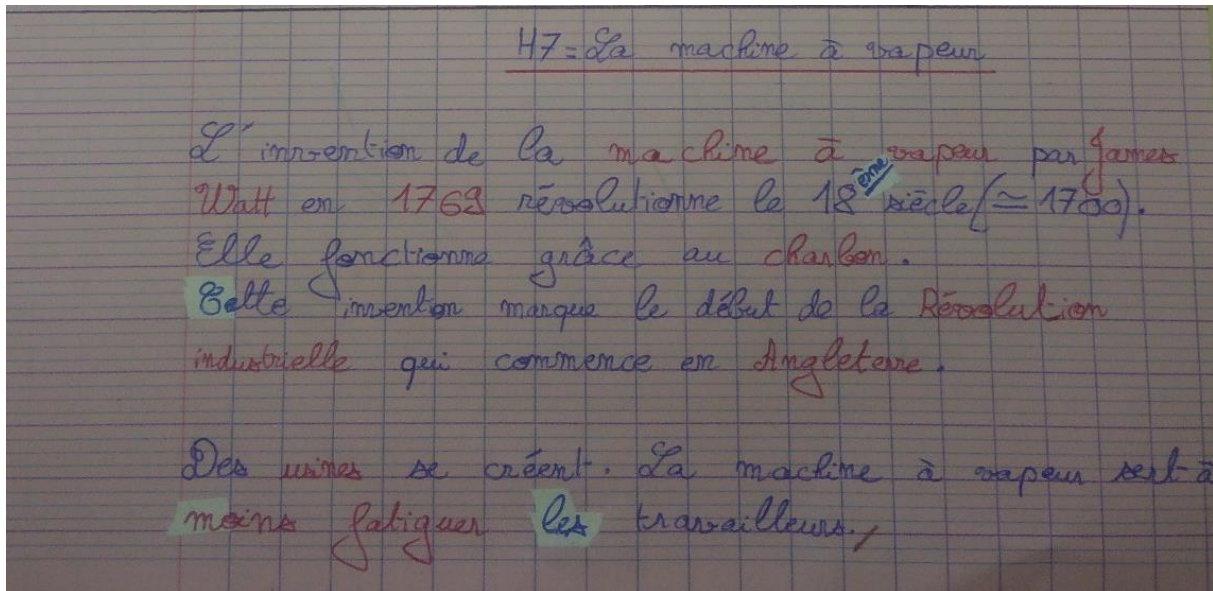 H7 = La machine à vapeur
L'invention de la machine à vapeur par James
Watt en 1769 révolutionne le 18ème siècle (≃ 1700).
Elle fonctionne grâce au charbon.
Cette invention marque le début de la Révolution
industrielle qui commence en Angleterre.
Des usines se créent. La machine à vapeur sert à
moins fatiguer les travailleurs.